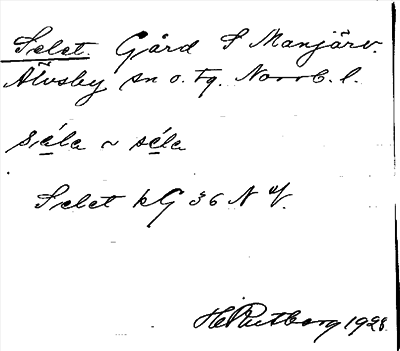 Selet. Gård S Manjärv.
Älvsby sn o. tg. Norrb. l.
séla ~ séla
Selet kG 36 N V.
H Rutberg 1928.